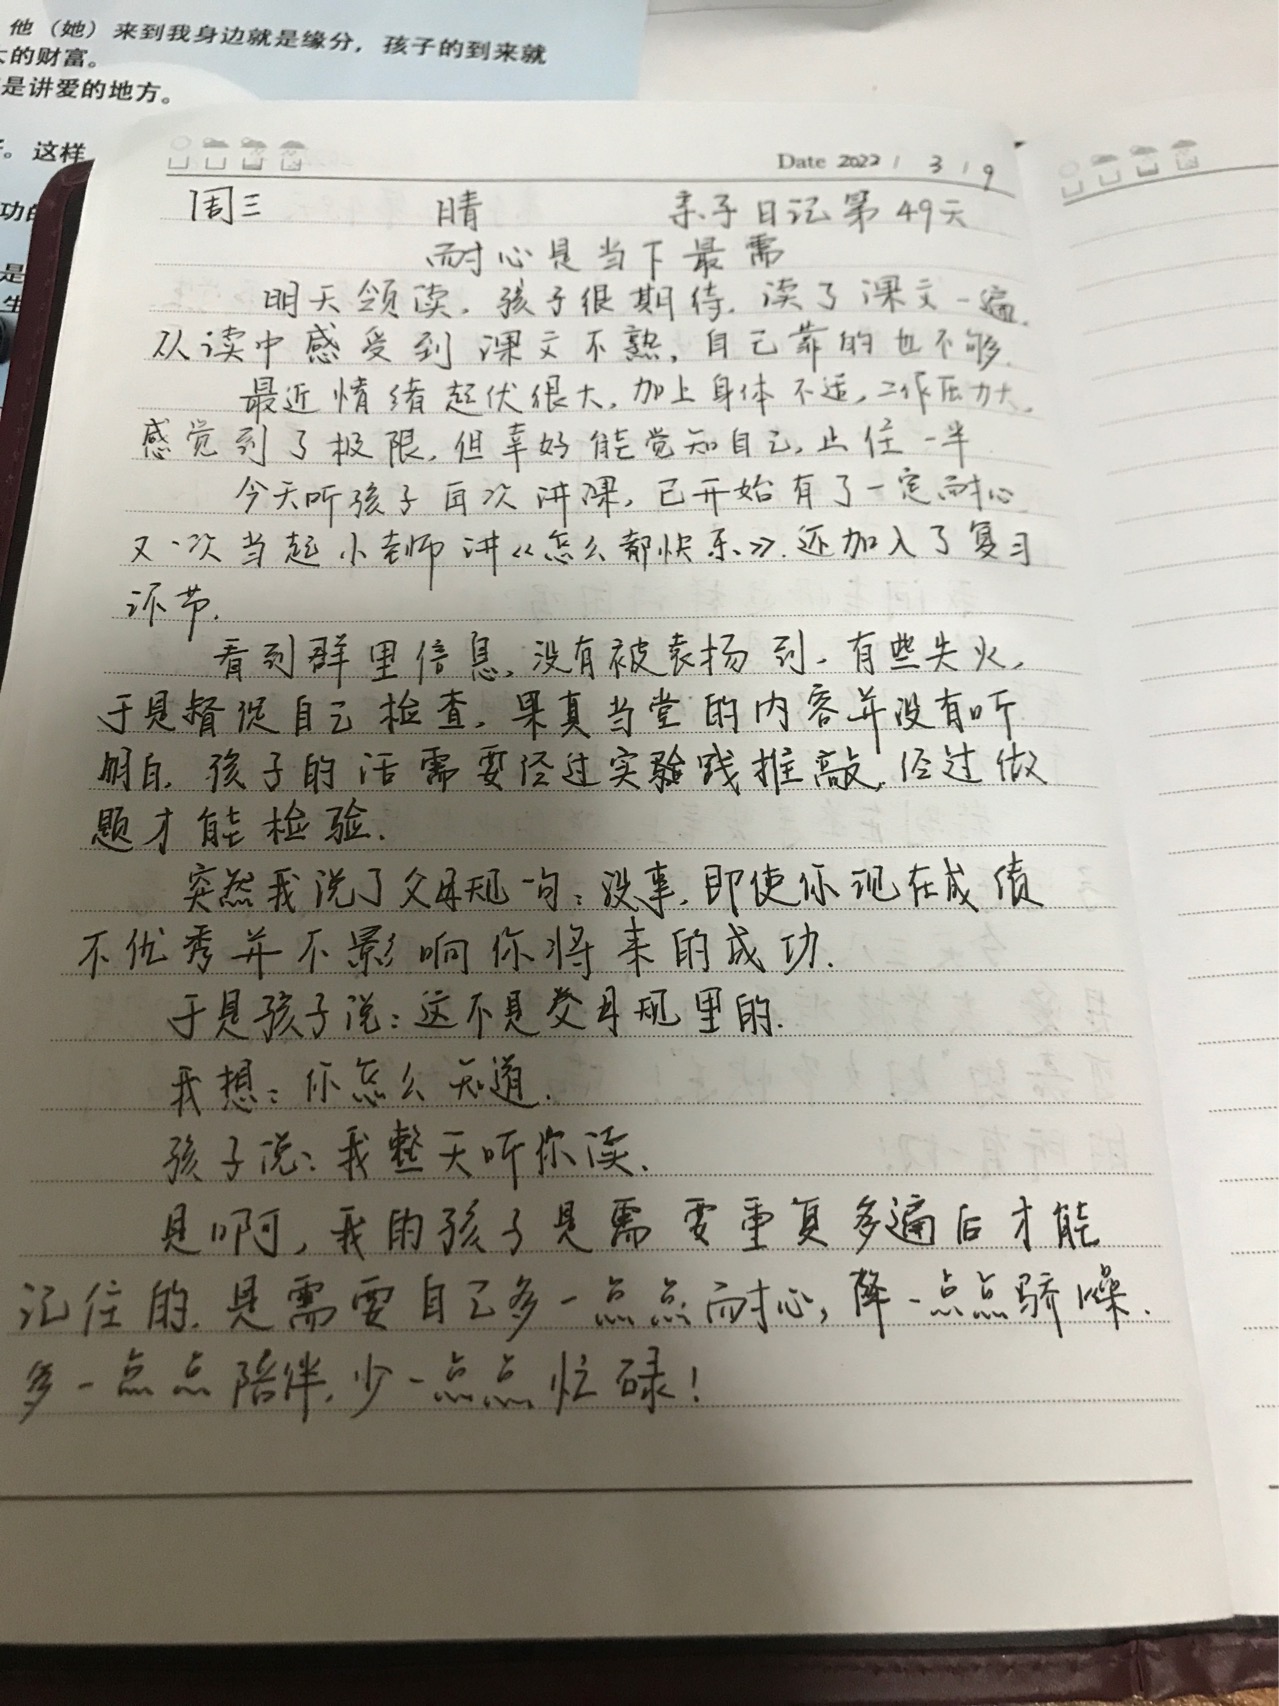 他（她）来到我身边就是缘分，孩子的到来就
大的财富。
是讲爱的地方。
。这样
功的
是
生
Date 2022 / 3 / 9
周三 晴 亲子日记第49天
耐心是当下最需
明天领读，孩子很期待，读了课文一遍，
从读中感受到课文不熟，自己靠的也不够。
最近情绪起伏很大，加上身体不适，工作压力大，
感觉到了极限，但幸好能觉知自己，止住一半
今天听孩子再次讲课，已开始有了一定耐心
又一次当起小老师讲《怎么都快乐》。还加入了复习
环节。
看到群里信息，没有被表扬到，有些失火，
于是督促自己检查，果真当堂的内容并没有听
明白，孩子的话需要经过实验践推敲，经过做
题才能检验。
突然我说了父母规一句：没事，即使你现在成绩
不优秀并不影响你将来的成功。
于是孩子说：这不是父母规里的。
我想：你怎么知道。
孩子说：我整天听你读。
是啊，我的孩子是需要重复多遍后才能
记住的，是需要自己多一点点耐心，降一点点骄噪，
多一点点陪伴，少一点点忙碌！